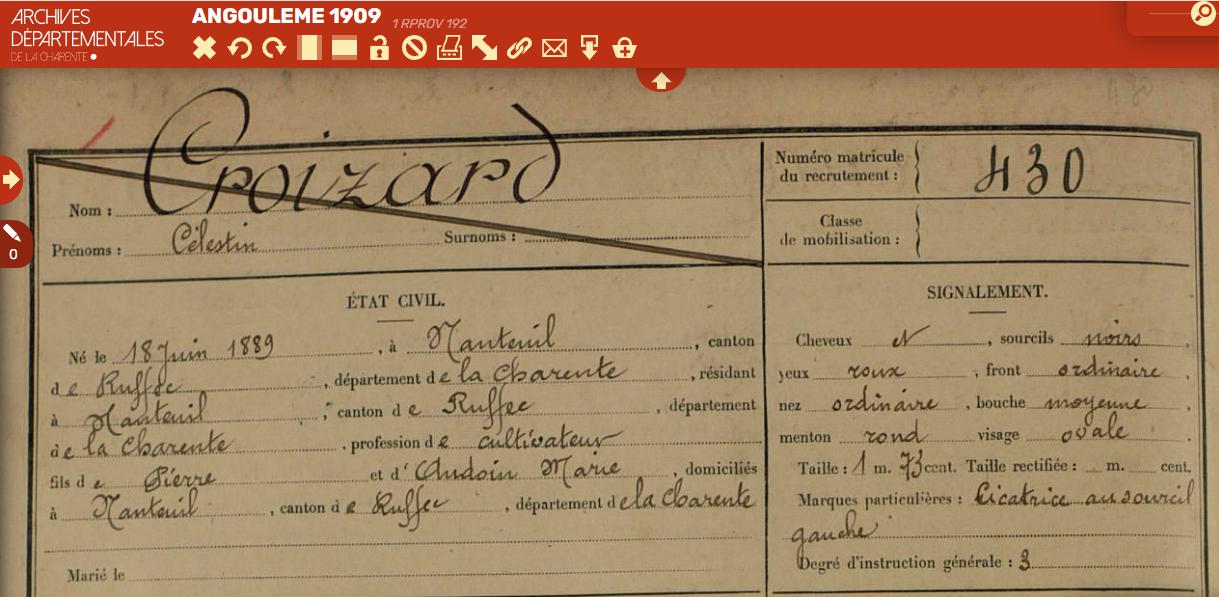 ARCHIVES
DÉPARTEMENTALES
DE LA CHARENTE
ANGOULEME 1909 1 RPROV 192
0
Nom : Croizard
Prénoms : Célestin Surnoms :
Numéro matricule du recrutement : 430
Classe de mobilisation :
ÉTAT CIVIL.
Né le 18 Juin 1889, à Nanteuil, canton
de Ruffec, département de la Charente, résidant
à Nanteuil, canton de Ruffec, département
de la Charente, profession de cultivateur
fils de Pierre et d'Audoin Marie, domiciliés
à Nanteuil, canton de Ruffec, département de la Charente
Marié le
SIGNALEMENT.
Cheveux et, sourcils noirs,
yeux roux, front ordinaire,
nez ordinaire, bouche moyenne
menton rond visage ovale.
Taille : 1 m. 73 cent. Taille rectifiée : m. cent.
Marques particulières : Cicatrice au sourcil
gauche
Degré d'instruction générale : 3